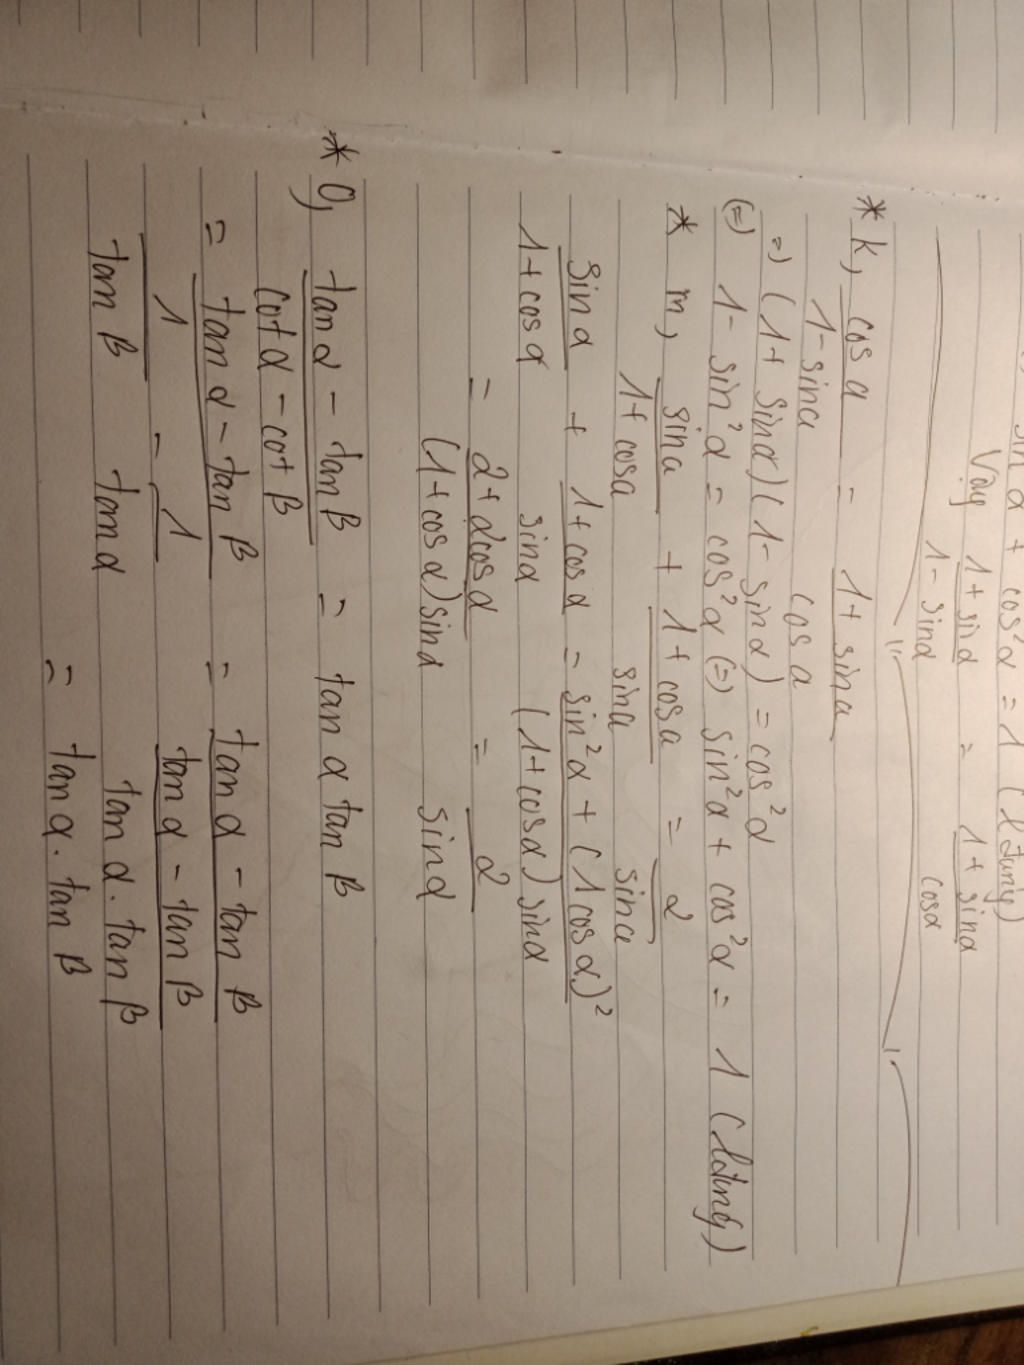 sin²α + cos²α = 1 (lđúng)
Vậy (1 + sinα)/(1 - sinα) = (1 + sinα)/cosα
* k, cos a/(1 - sina) = (1 + sina)/cos a
=> (1 + sinα)(1 - sinα) = cos²α
(=) 1 - sin²α = cos²α (=) sin²α + cos²α = 1 (lđúng)
* m, sina/(1 + cosa) + (1 + cosa)/sina = 2/sina
sinα/(1 + cosα) + (1 + cosα)/sinα = (sin²α + (1 cosα)²)/((1 + cosα) sinα)
= (2 + 2cosα)/((1 + cosα) sinα) = 2/sinα
* O, (tanα - tanβ)/(cotα - cotβ) = tanα tanβ
= (tanα - tanβ)/(1/tanβ - 1/tanα) = (tanα - tanβ)/((tanα - tanβ)/(tanα . tanβ))
= tanα . tanβ